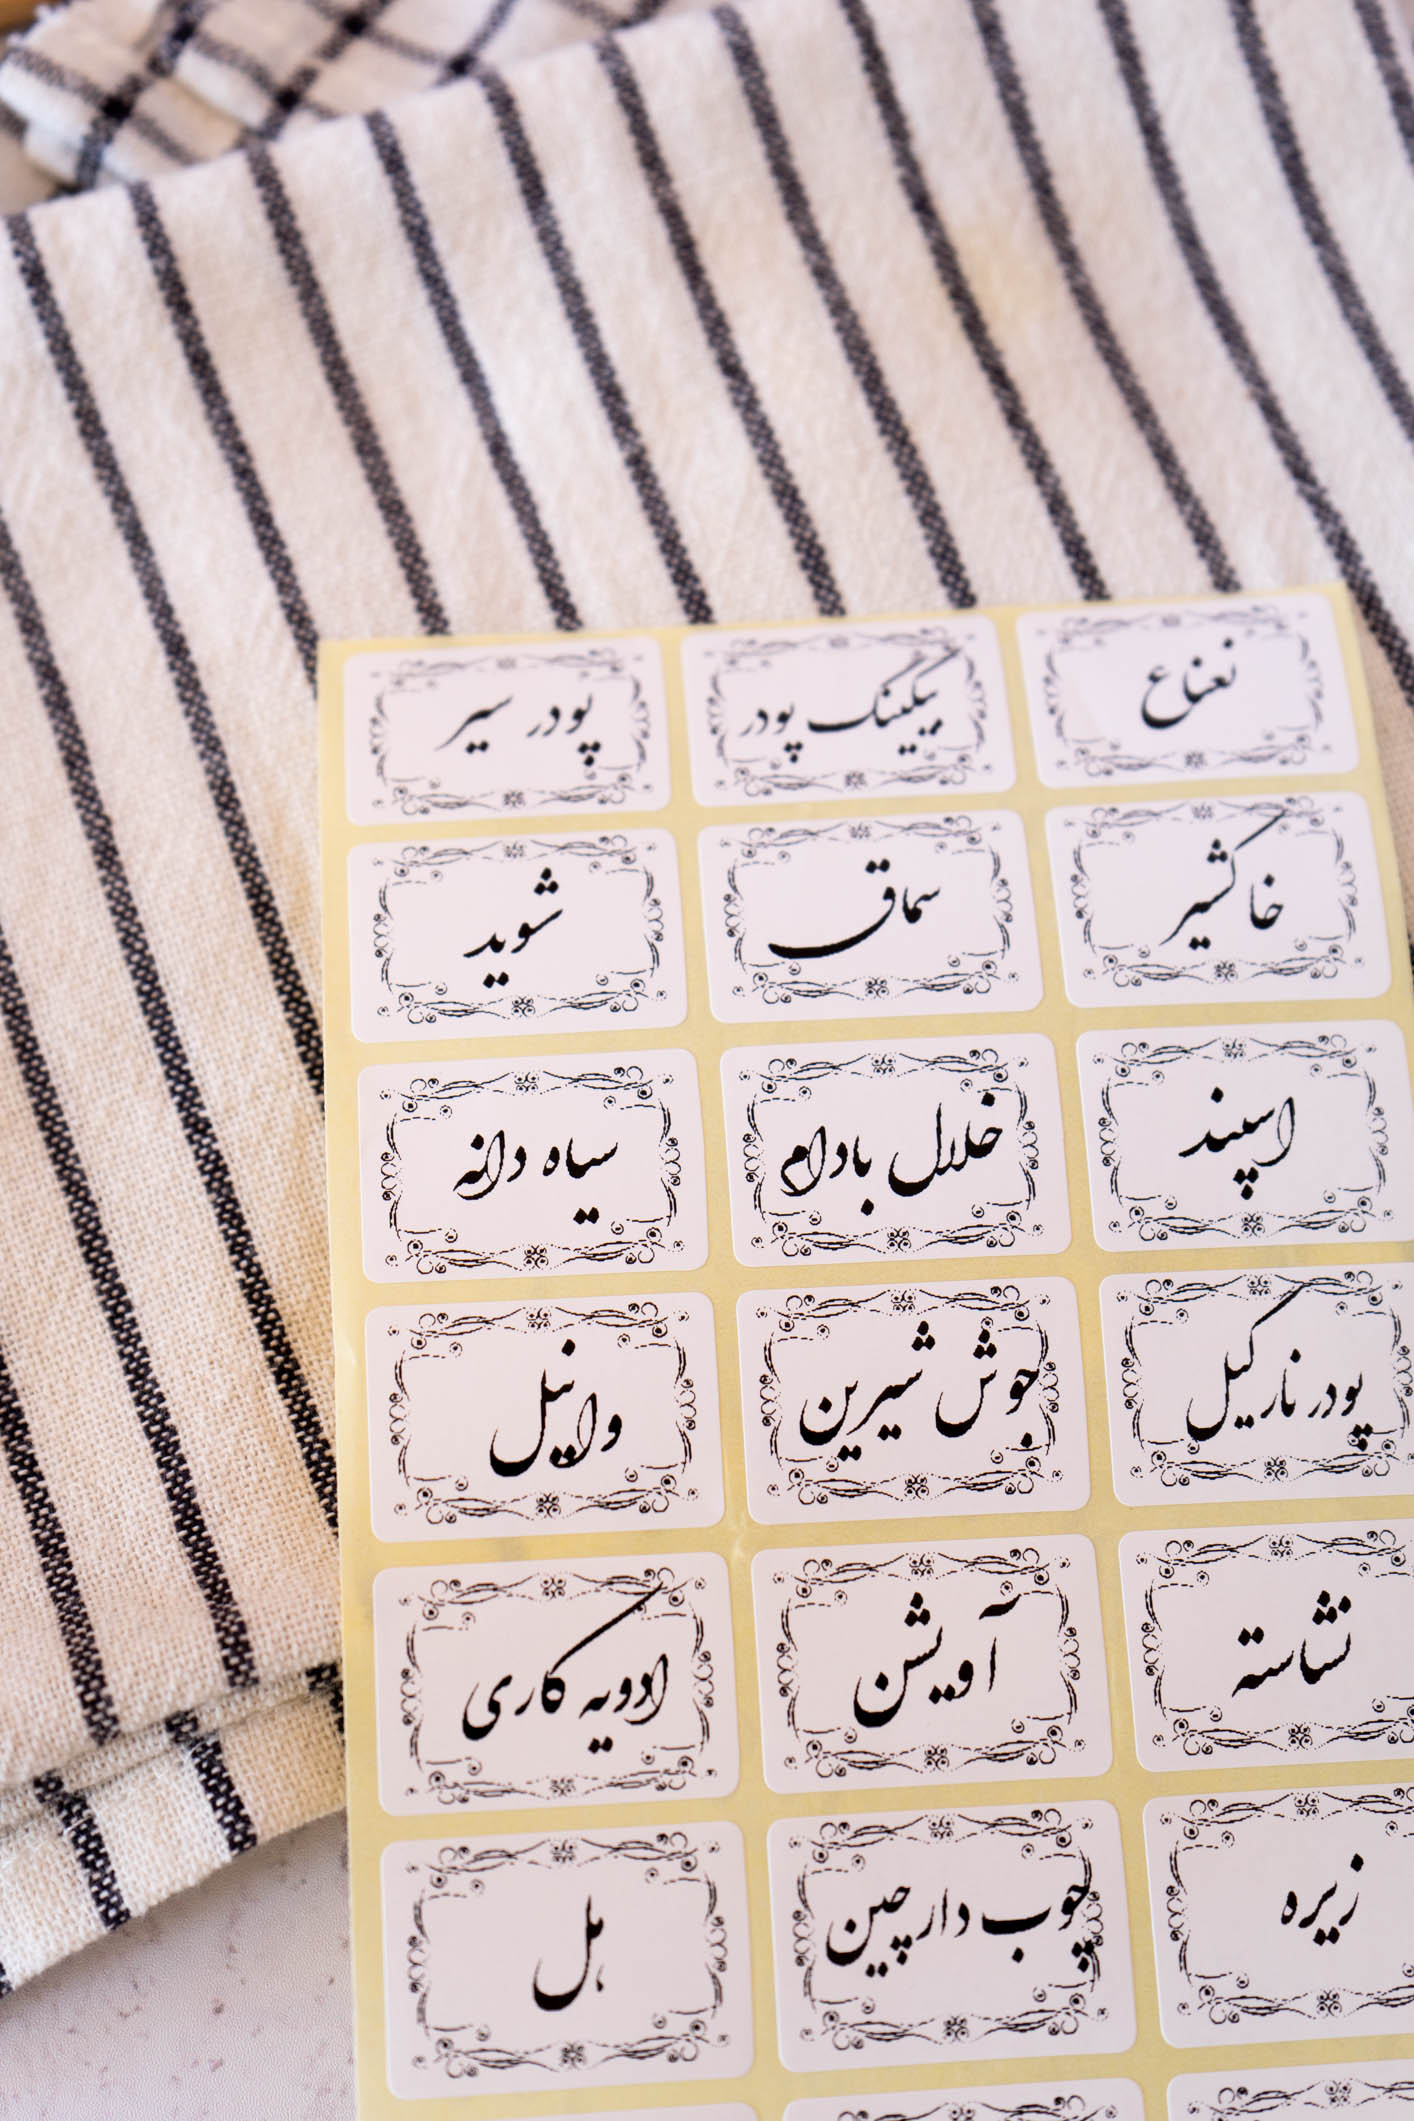 نعناع
بیکینگ پودر
پودر سیر
خاکشیر
سماق
شوید
اسپند
خلال بادام
سیاه دانه
پودر نارگیل
جوش شیرین
وانیل
نشاسته
آویشن
ادویه کاری
زیره
چوب دارچین
هل